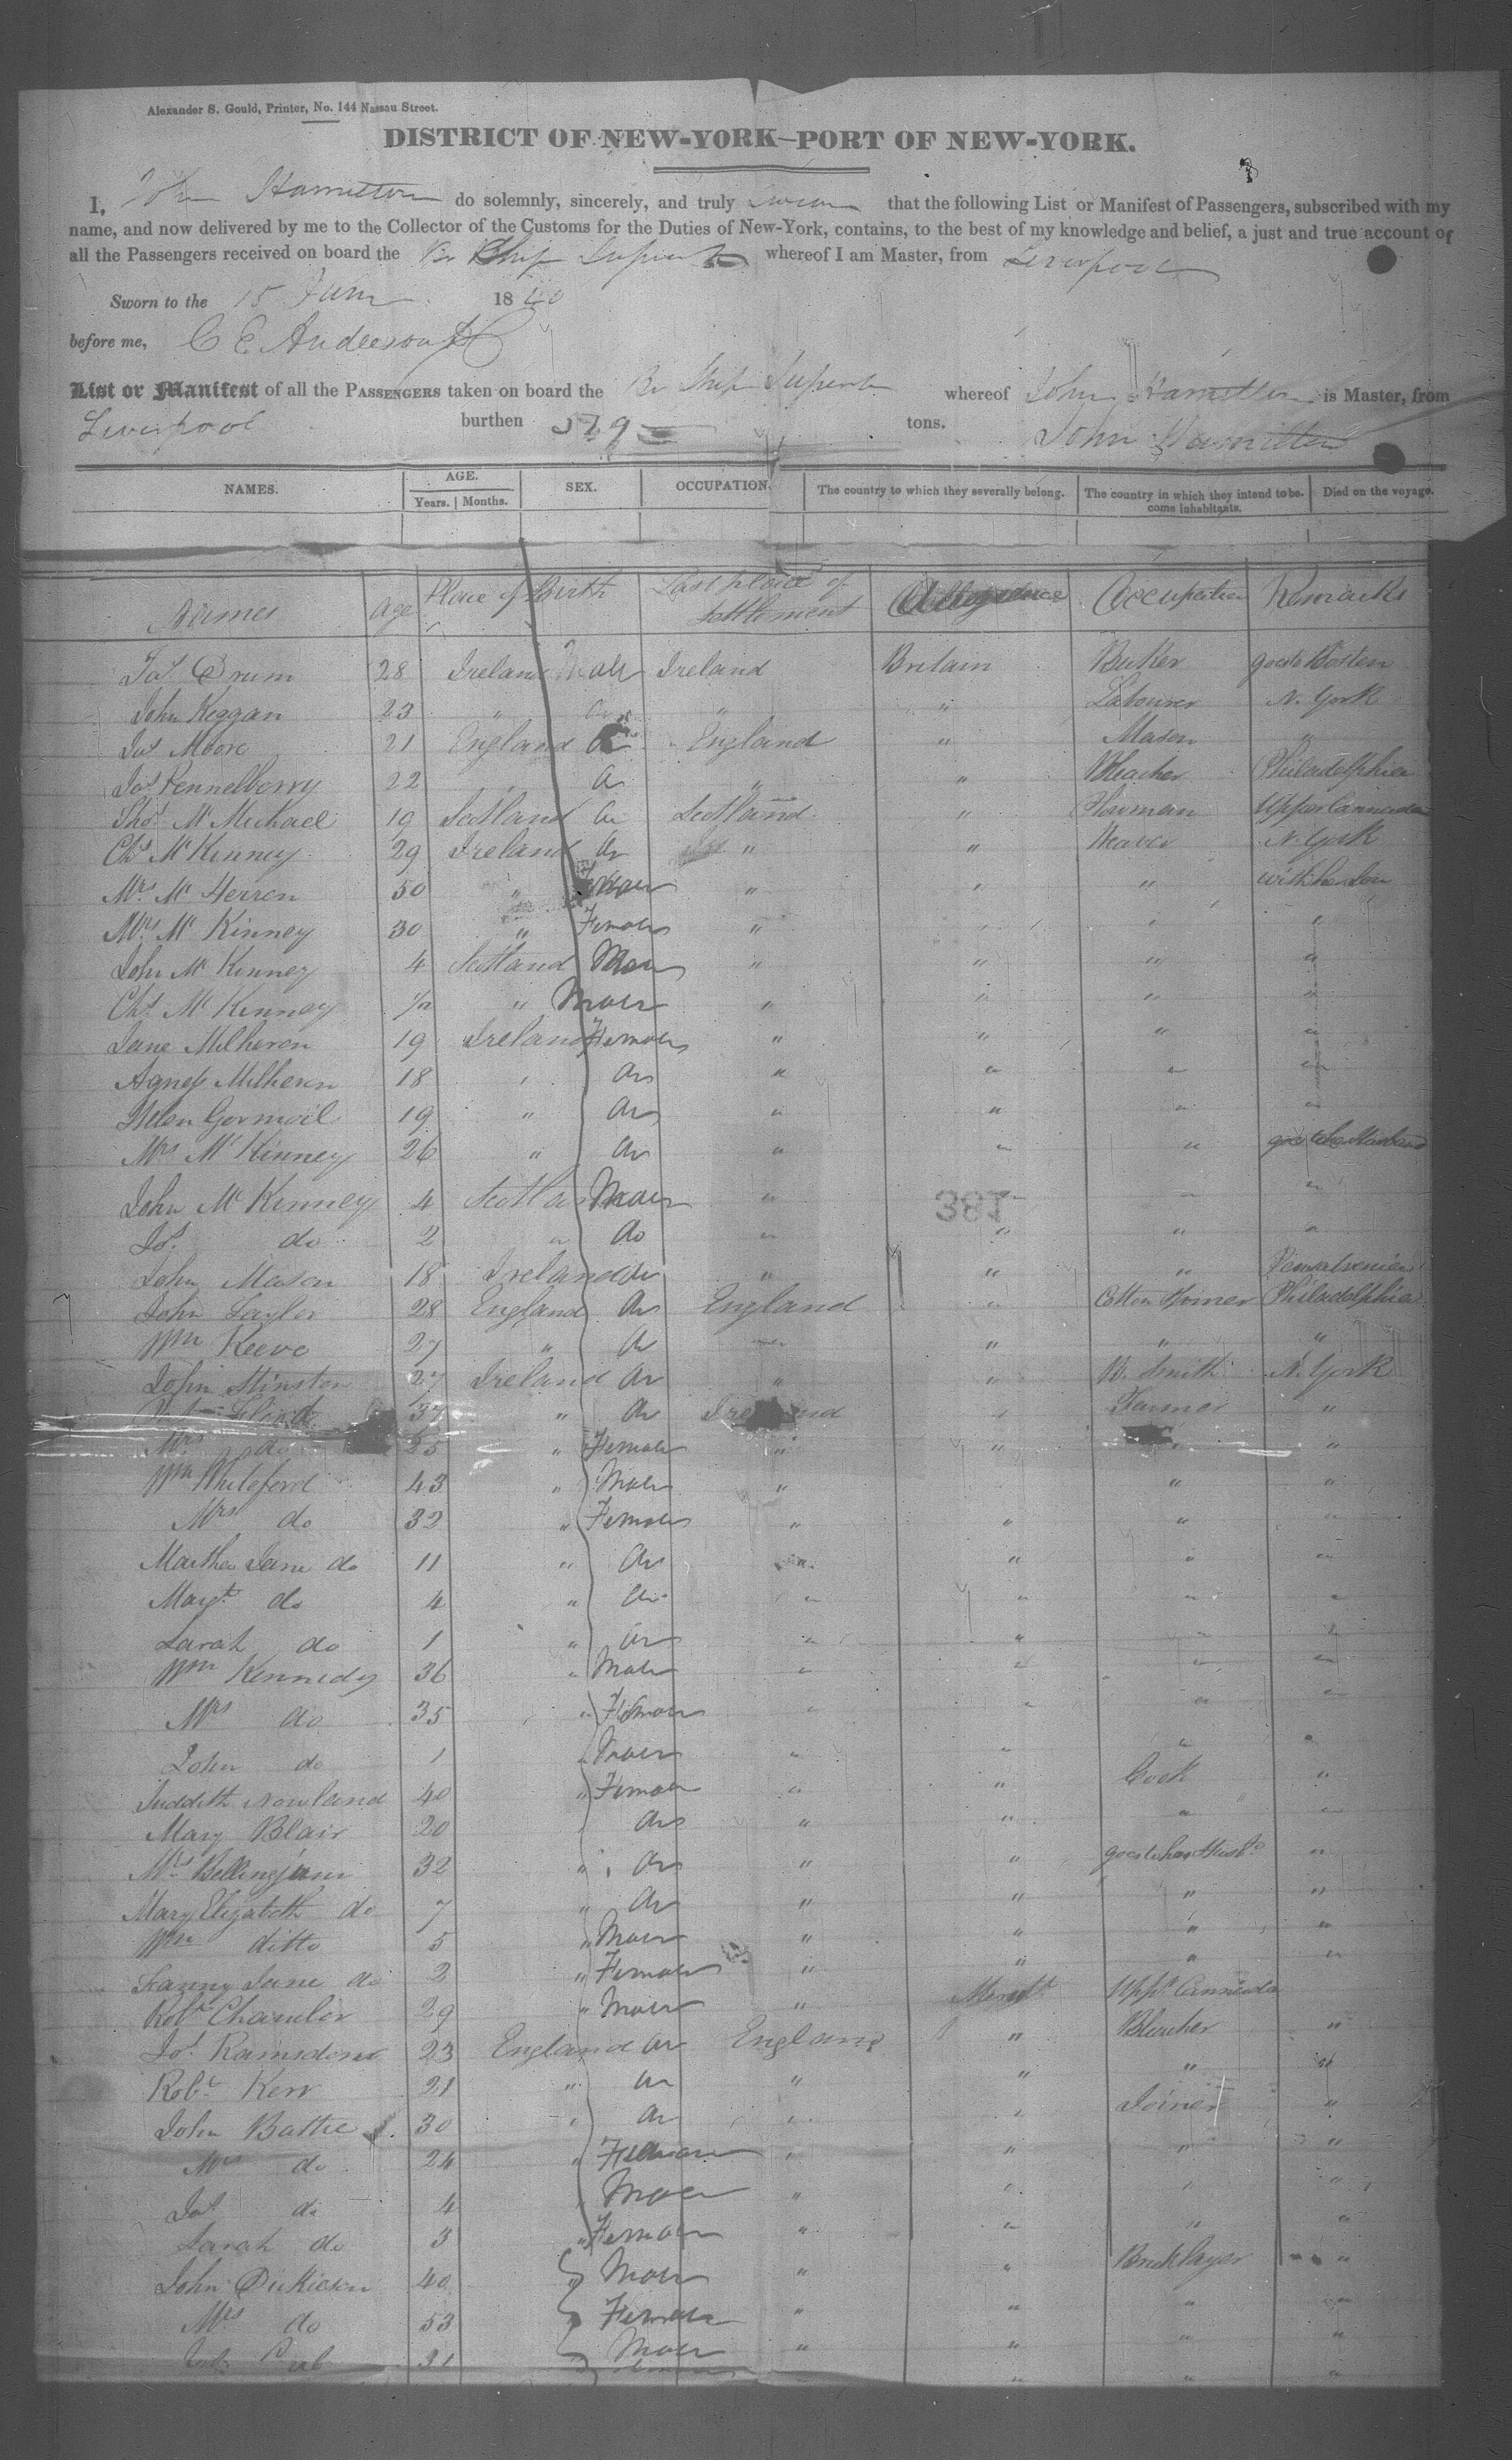 Alexander S. Gould, Printer, No. 144 Nassau Street.
DISTRICT OF NEW-YORK—PORT OF NEW-YORK.
I, John Hamilton do solemnly, sincerely, and truly swear that the following List or Manifest of Passengers, subscribed with my
name, and now delivered by me to the Collector of the Customs for the Duties of New-York, contains, to the best of my knowledge and belief, a just and true account of
all the Passengers received on board the Br Ship Superb whereof I am Master, from Liverpool
Sworn to the 15 June 1840
before me, C E Anderson
List or Manifest of all the PASSENGERS taken on board the Br Ship Superb whereof John Hamilton is Master, from
Liverpool burthen 579 tons. John Hamilton
NAMES. AGE. Years. Months. SEX. OCCUPATION. The country to which they severally belong. The country in which they intend to become inhabitants. Died on the voyage.
Names Age Place of Birth Last place of settlement Allegiance Occupation Remarks
Jas Drum 28 Ireland Male Ireland Britain Baker goes to Boston
John Keggan 23 " " " Labourer N. York
Jas Moore 21 England England " Mason "
22 " " Bleacher Philadelphia
Thos McMichael 19 Scotland do Scotland " Upper Cannada
Chs McKinney 29 Ireland do " " Weaver N. York
Mrs McHerren 50 " " " " with her son
Mrs McKinney 30 " Female " " " "
John McKinney 4 Scotland Male " " " "
Chs McKinney " Male " " " "
Jane Milheren 19 Ireland Female " " " "
Agness Milheren 18 " do " " " "
Helen Gormoil 19 " do " " " "
Mrs McKinney 26 " do " " " goes to her Husband
John McKinney 4 Scotland Male " " " "
381
Jos. do 2 " do " " " "
John Mason 18 Ireland do " " " Pensalvenia
John Taylor 28 England do England " Cotton Spiner Philadelphia
Wm Keeve 27 " do " " " "
John Hinston 27 Ireland do " " B. Smith N. York
37 " do Ireland " Farmer "
Mrs do 25 " Female " " " "
Wm Whiteford 43 " Male " " "
Mrs do 32 " Female " " " "
Martha Jane do 11 " do " " " "
Margt do 4 " do " " " "
Sarah do 1 " do " " " "
Wm Kennedy 36 " Male " " " "
Mrs do 35 " Female " " " "
John do 1 " Male " " " "
Juddith Nowland 40 " Female " " Cook "
Mary Blair 20 do " " " "
Mrs Bellingjam 32 " do " " goes to her Husbd "
Mary Elizabeth do 7 " do " " " "
Wm ditto 5 " Male " " " "
Fanny Jane do 2 " Female " " " "
Robt Chambor 29 " Male " Mercht Uppr Cannada
Jos. Ramsdone 23 England do England " Bleacher "
Robt Kerr 21 " do " " " "
John Battie 30 " do " " Joiner "
Mrs do 24 " Female " " " "
Jas do 4 " Male " " " "
Sarah do 3 " Female " " " "
John Dickieson 40 " Male " " Bricklayer "
Mrs do 53 Female " " " "
31 Male " " " "